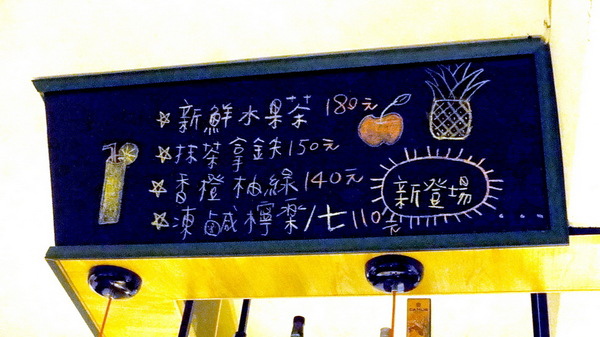 新鮮水果茶 180元
抹茶拿鉄150元
香橙柚綠 140元
凍鹹檸樂/七110元
新登場